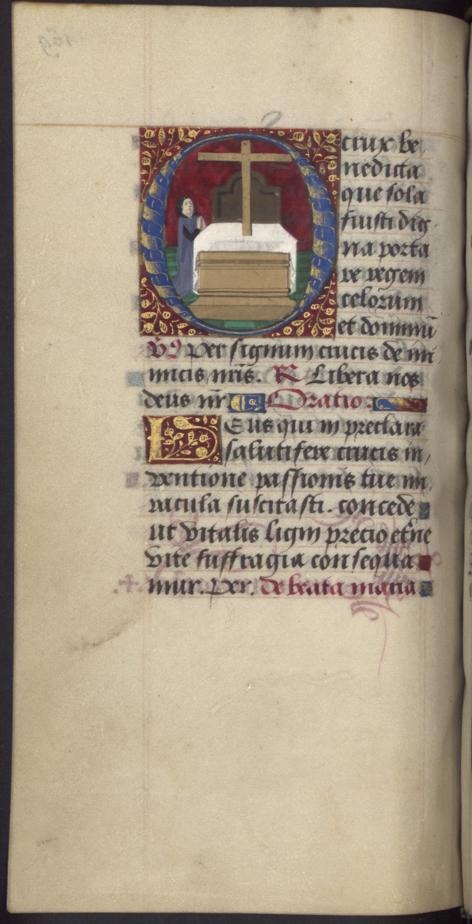 O crux be
nedicta
que sola
fuisti dig
na porta
re regem
celorum
et dominū
Per signum crucis de ini
micis nr̄is. R Libera nos
deus nr̄. Oratio
Deus qui in preclara
salutifere crucis in
ventione passionis tue mi
racula suscitasti. concede
ut vitalis ligni precio etͤne
vite suffragia consequa
mur. Per. de beata maria